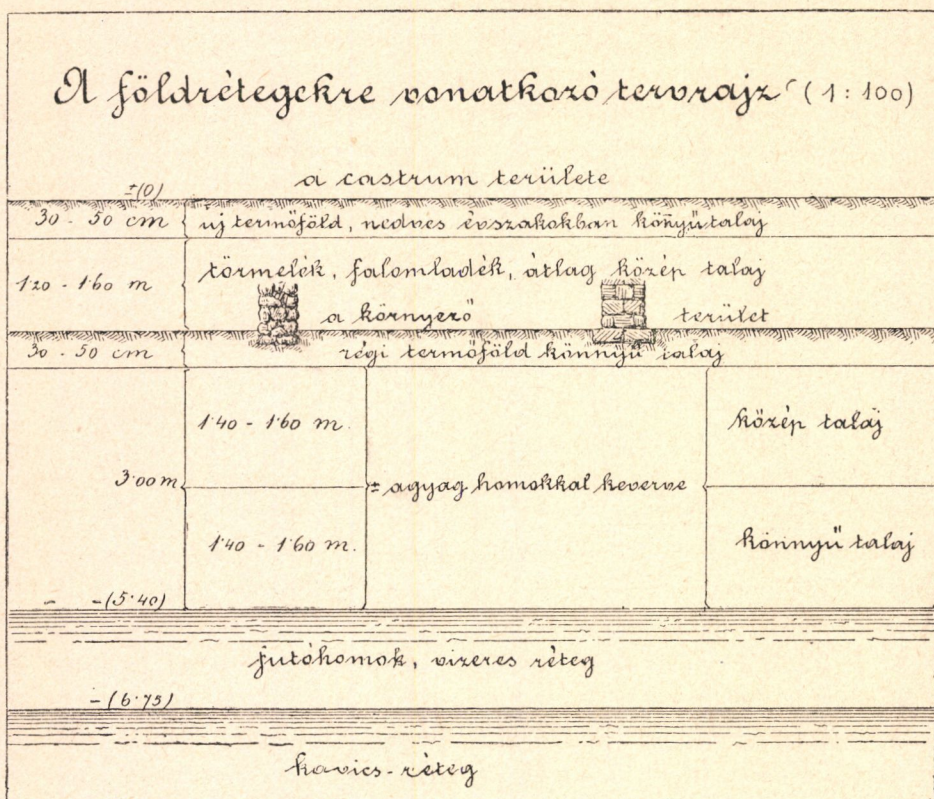 A földrétegekre vonatkozó tervrajz (1:100)
a castrum területe
±(0)
30 - 50 cm új termőföld, nedves évszakokban könyű talaj
1·20 - 1·60 m törmelék, falomladék, átlag közép talaj
a környező terület
30 - 50 cm régi termőföld könnyű talaj
1·40 - 1·60 m. közép talaj
3·00 m ± agyag homokkal keverve
1·40 - 1·60 m. könnyű talaj
- -(5·40)
futóhomok, vizeres réteg
-(6·75)
kavics-réteg